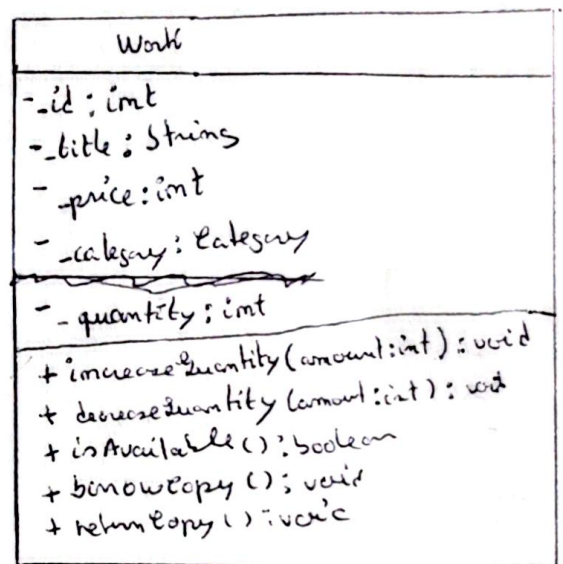 Work
- _id : int
- _title : String
- _price : int
- _category : Category
- _quantity : int
+ increaseQuantity (amount : int) : void
+ decreaseQuantity (amount : int) : void
+ isAvailable () : boolean
+ borrowCopy () : void
+ returnCopy () : void